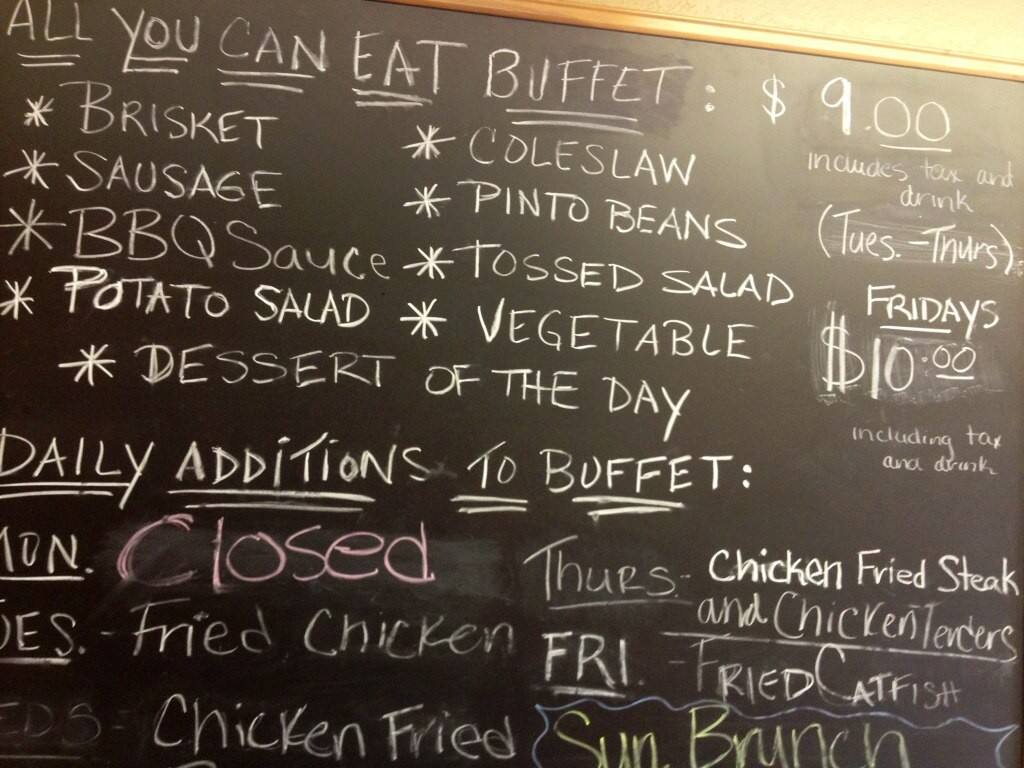 ALL YOU CAN EAT BUFFET: $9.00
includes tax and
drink
(Tues.-Thurs)
* BRISKET
* SAUSAGE
* BBQ Sauce
* POTATO SALAD
* COLESLAW
* PINTO BEANS
* TOSSED SALAD
* VEGETABLE
* DESSERT OF THE DAY
FRIDAYS
$10.00
including tax
and drink
DAILY ADDITIONS TO BUFFET:
MON. Closed
UES. - Fried Chicken
EDS - Chicken Fried
THURS- Chicken Fried Steak
and Chicken Tenders
FRI. - FRIED CATFISH
Sun. Brunch